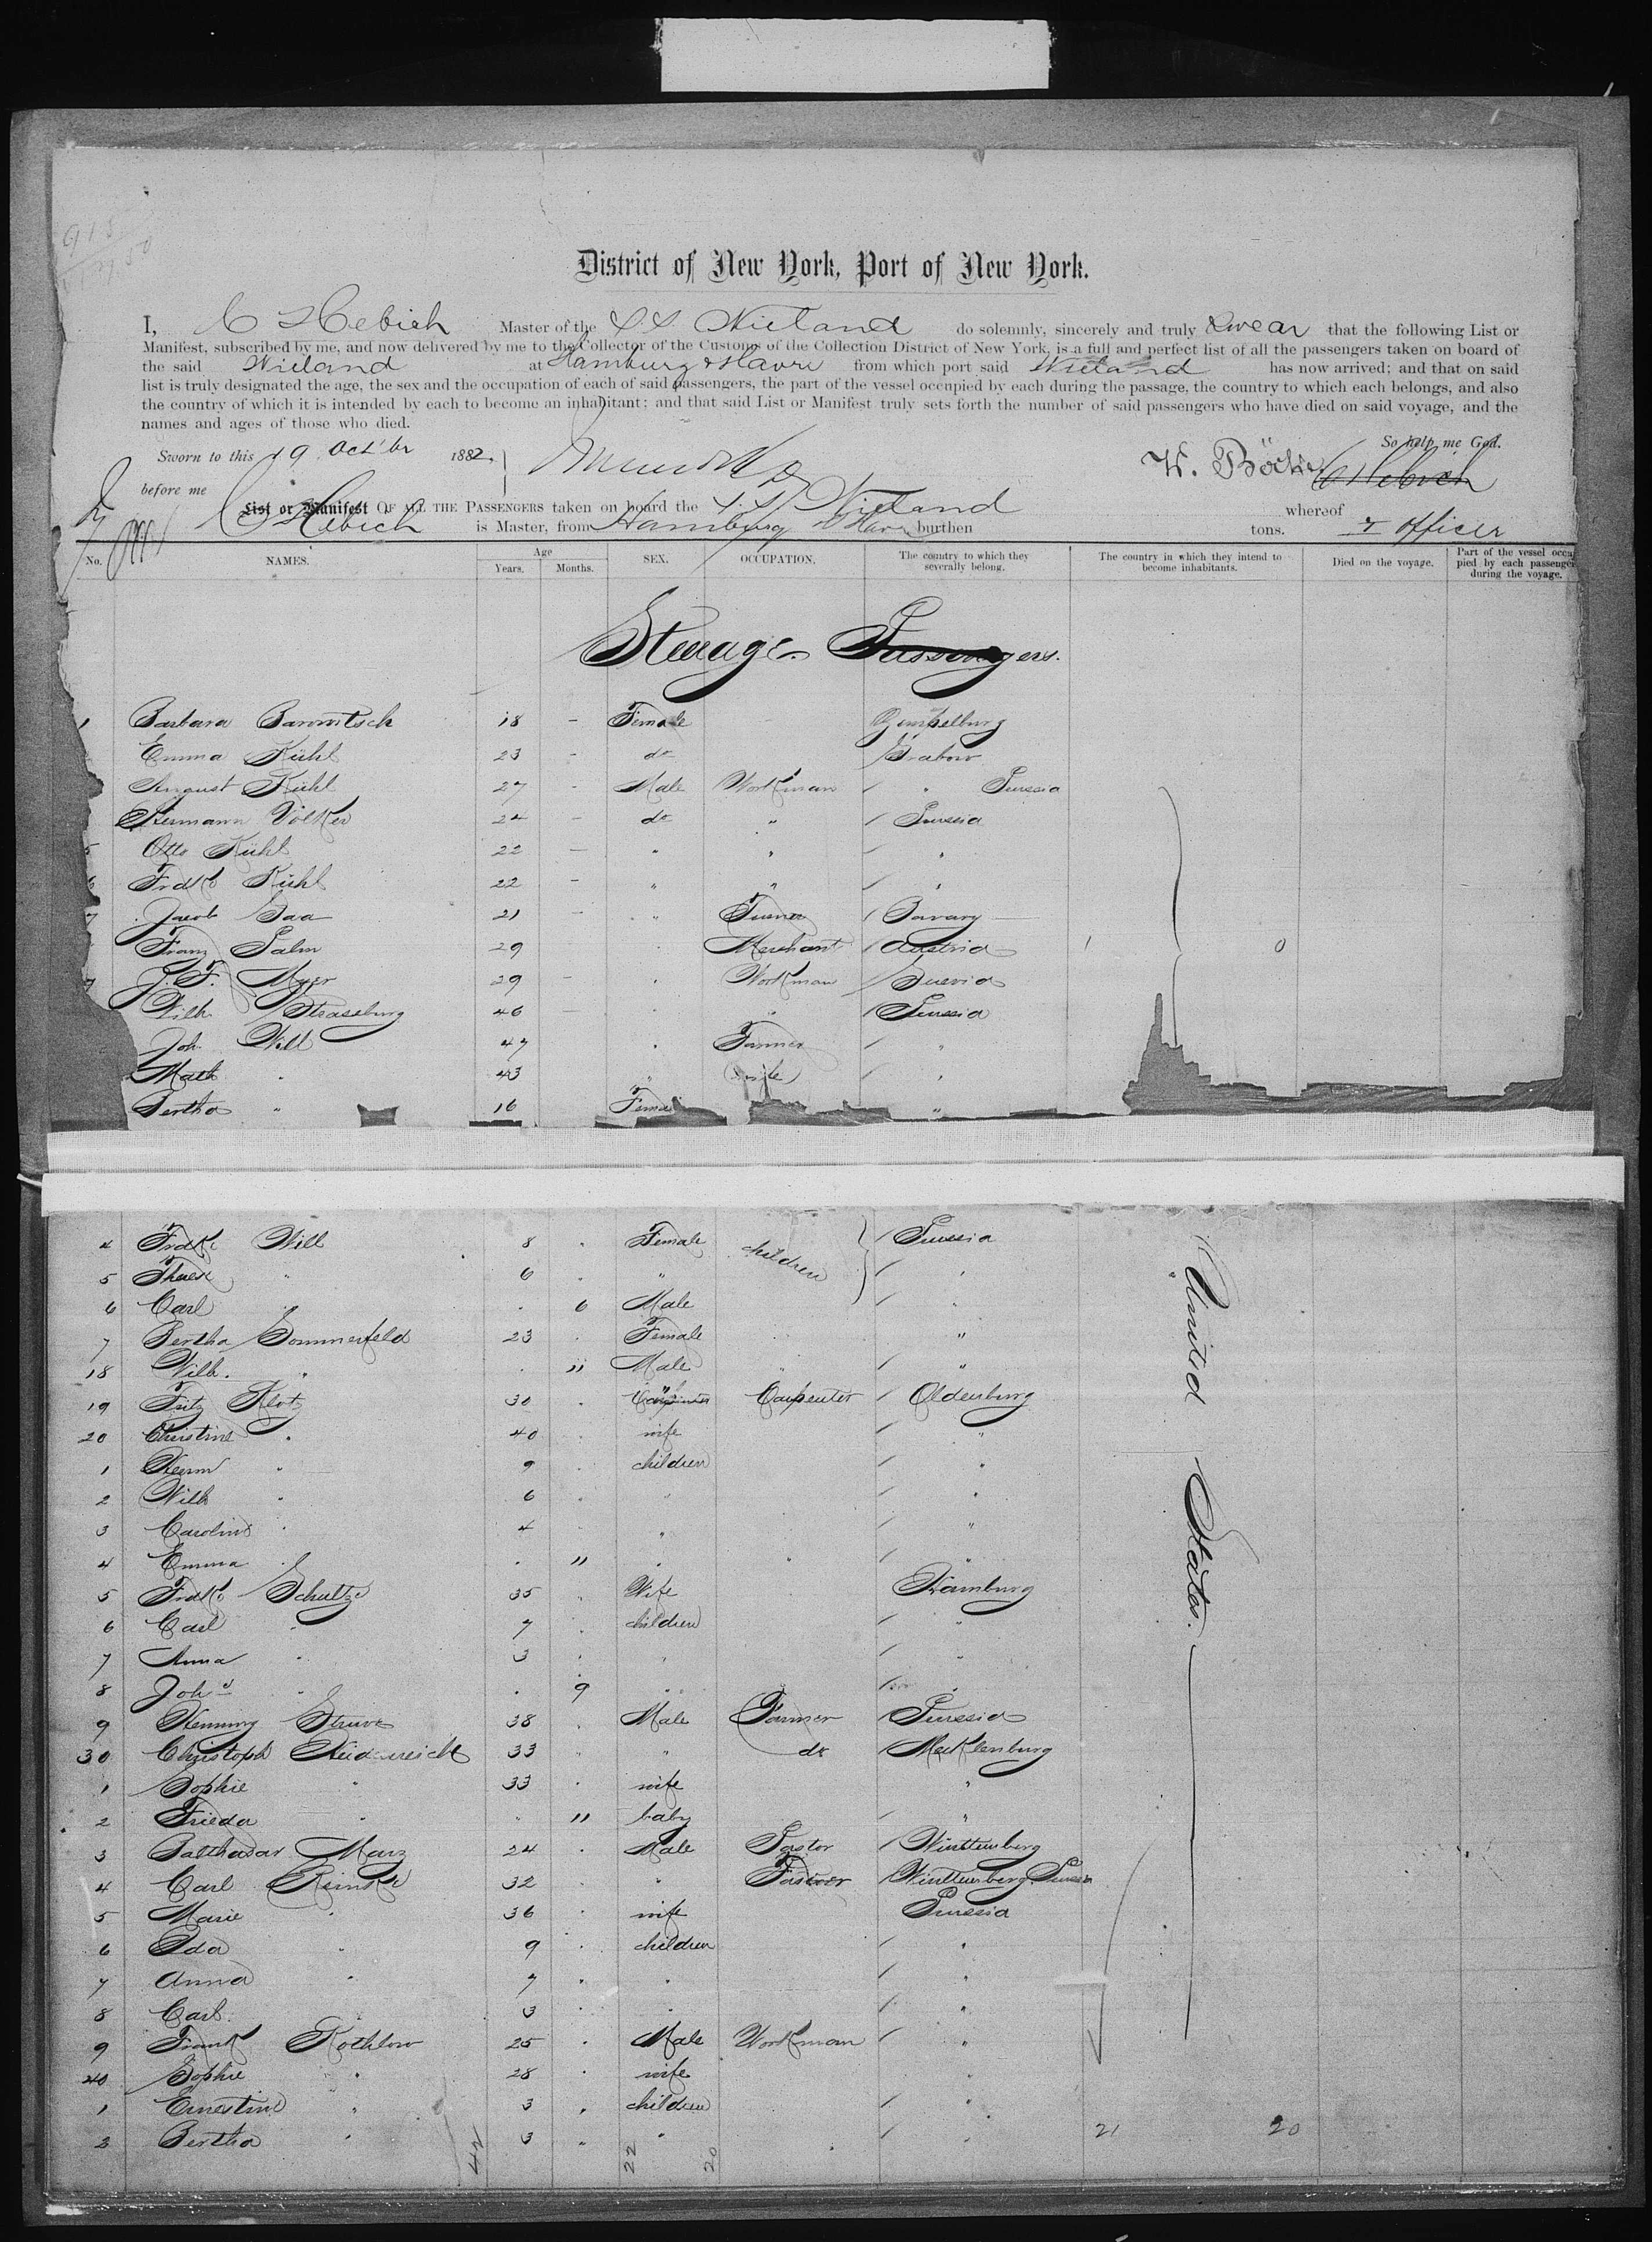 District of New York, Port of New York.
I, C Hebich Master of the S.S. Wieland do solemnly, sincerely and truly Swear that the following List or
Manifest, subscribed by me, and now delivered by me to the Collector of the Customs of the Collection District of New York, is a full and perfect list of all the passengers taken on board of
the said Wieland at Hamburg & Havre from which port said Wieland has now arrived; and that on said
list is truly designated the age, the sex and the occupation of each of said passengers, the part of the vessel occupied by each during the passage, the country to which each belongs, and also
the country of which it is intended by each to become an inhabitant; and that said List or Manifest truly sets forth the number of said passengers who have died on said voyage, and the
names and ages of those who died.
So help me God.
Sworn to this 19 Oct'br 1882.
before me
C Hebich
List or Manifest OF ALL THE PASSENGERS taken on board the S.S. Wieland whereof
C Hebich is Master, from Hamburg & Havre burthen tons. I officer
No. NAMES. Age Years. Months. SEX. OCCUPATION. The country to which they severally belong. The country in which they intend to become inhabitants. Died on the voyage. Part of the vessel occupied by each passenger during the voyage.
Steerage Passengers.
1 Barbara 18 - Female
Emma Kühl 23 - do Grabow
August Kühl 27 - Male Workman " Prussia
Hermann Völker 24 - do " Prussia
5 Otto Kühl 22 - " " "
6 Fredke Kühl 22 - " " "
7 Jacob 21 - " Bavary
Franz Palm 29 Merchant Austria
J. F. Mayer 29 - " Workman
Wilh. Strassburg 46 - " " Prussia
Joh. Will 47 " Farmer "
Math " 43 " (wife) "
Bertha " 16 Female "
4 Fredke Will 8 Female children Prussia
5 Therese " 6 " "
6 Carl " 6 Male "
7 Bertha Sommerfeld 23 Female "
18 Wilh. " 11 Male "
19 Fritz Klotz 30 Carpenter Oldenburg
20 Christine " 40 wife "
1 Herm " 9 children "
2 Wilh " 6 " "
3 Caroline " 4 " "
4 Emma " 11 " "
5 Fredke Schultze 35 Wife Hamburg
6 Carl " 7 children "
7 Anna " 3 " "
8 Johs " 9 " "
9 Henning Struve 38 Male Farmer Prussia
30 Christoph 33 " do Mecklenburg
1 Sophie " 33 wife "
2 Frieda " 11 baby "
3 Balthasar Marz 24 Male Pastor Württemberg
4 Carl Reinske 32 " Württemberg Prussia
5 Marie " 36 wife Prussia
6 Ida " 9 children "
7 Anna " 7 " "
8 Carl " 3 " "
9 Frank Rothlow 25 Male Workman "
40 Sophie " 28 wife "
1 Ernestine " 3 children "
2 Bertha " 3 " "
United States.
42 22 20 21 20